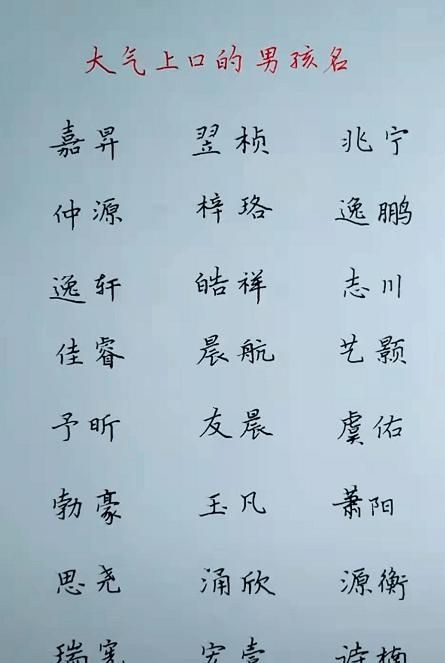 大气上口的男孩名
嘉昇 翌桢 兆宁
仲源 梓珞 逸鹏
逸轩 皓祥 志川
佳睿 晨航 艺颢
予昕 友晨 虞佑
勃豪 玉凡 萧阳
思尧 涌欣 源衡
瑞